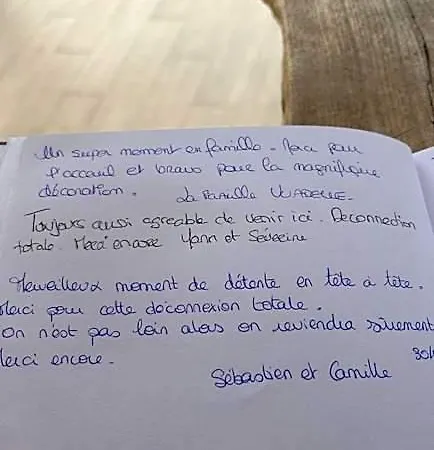 Un super moment en famille. Merci pour
l'accueil et bravo pour la magnifique
décoration. La Famille
Toujours aussi agréable de venir ici. Deconnection
totale. Merci encore Yann et Séverine
Merveilleux moment de détente en tête à tête.
Merci pour cette déconnexion totale.
On n'est pas loin alors on reviendra sûrement
Merci encore. 30/
Sébastien et Camille